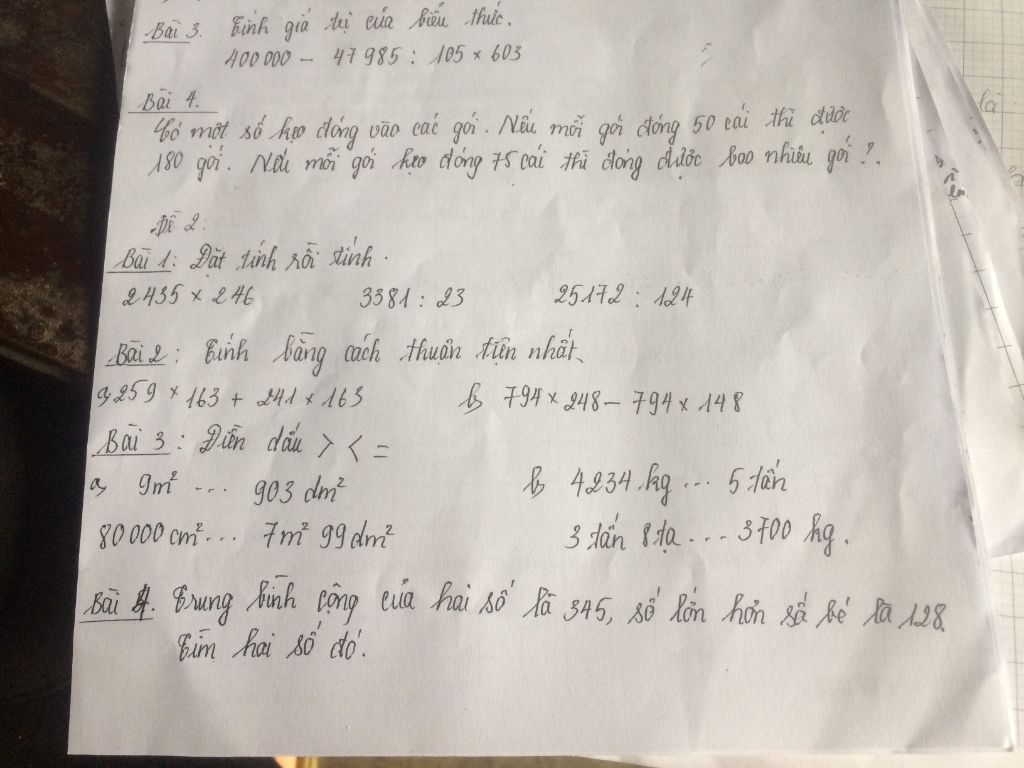 Bài 3. Tính giá trị của biểu thức.
400 000 - 47 985 : 105 × 603
Bài 4.
Có một số kẹo đóng vào các gói. Nếu mỗi gói đóng 50 cái thì được
180 gói. Nếu mỗi gói kẹo đóng 75 cái thì đóng được bao nhiêu gói?.
Đề 2:
Bài 1: Đặt tính rồi tính.
2435 × 246 3381 : 23 25172 : 124
Bài 2: Tính bằng cách thuận tiện nhất.
a, 259 × 163 + 241 × 163 b, 794 × 248 - 794 × 148
Bài 3: Điền dấu > < =
a, 9m² ... 903 dm² b, 4234 kg ... 5 tấn
80 000 cm² ... 7m² 99dm² 3 tấn 8 tạ ... 3700 kg.
Bài 4. Trung bình cộng của hai số là 345, số lớn hơn số bé là 128.
Tìm hai số đó.